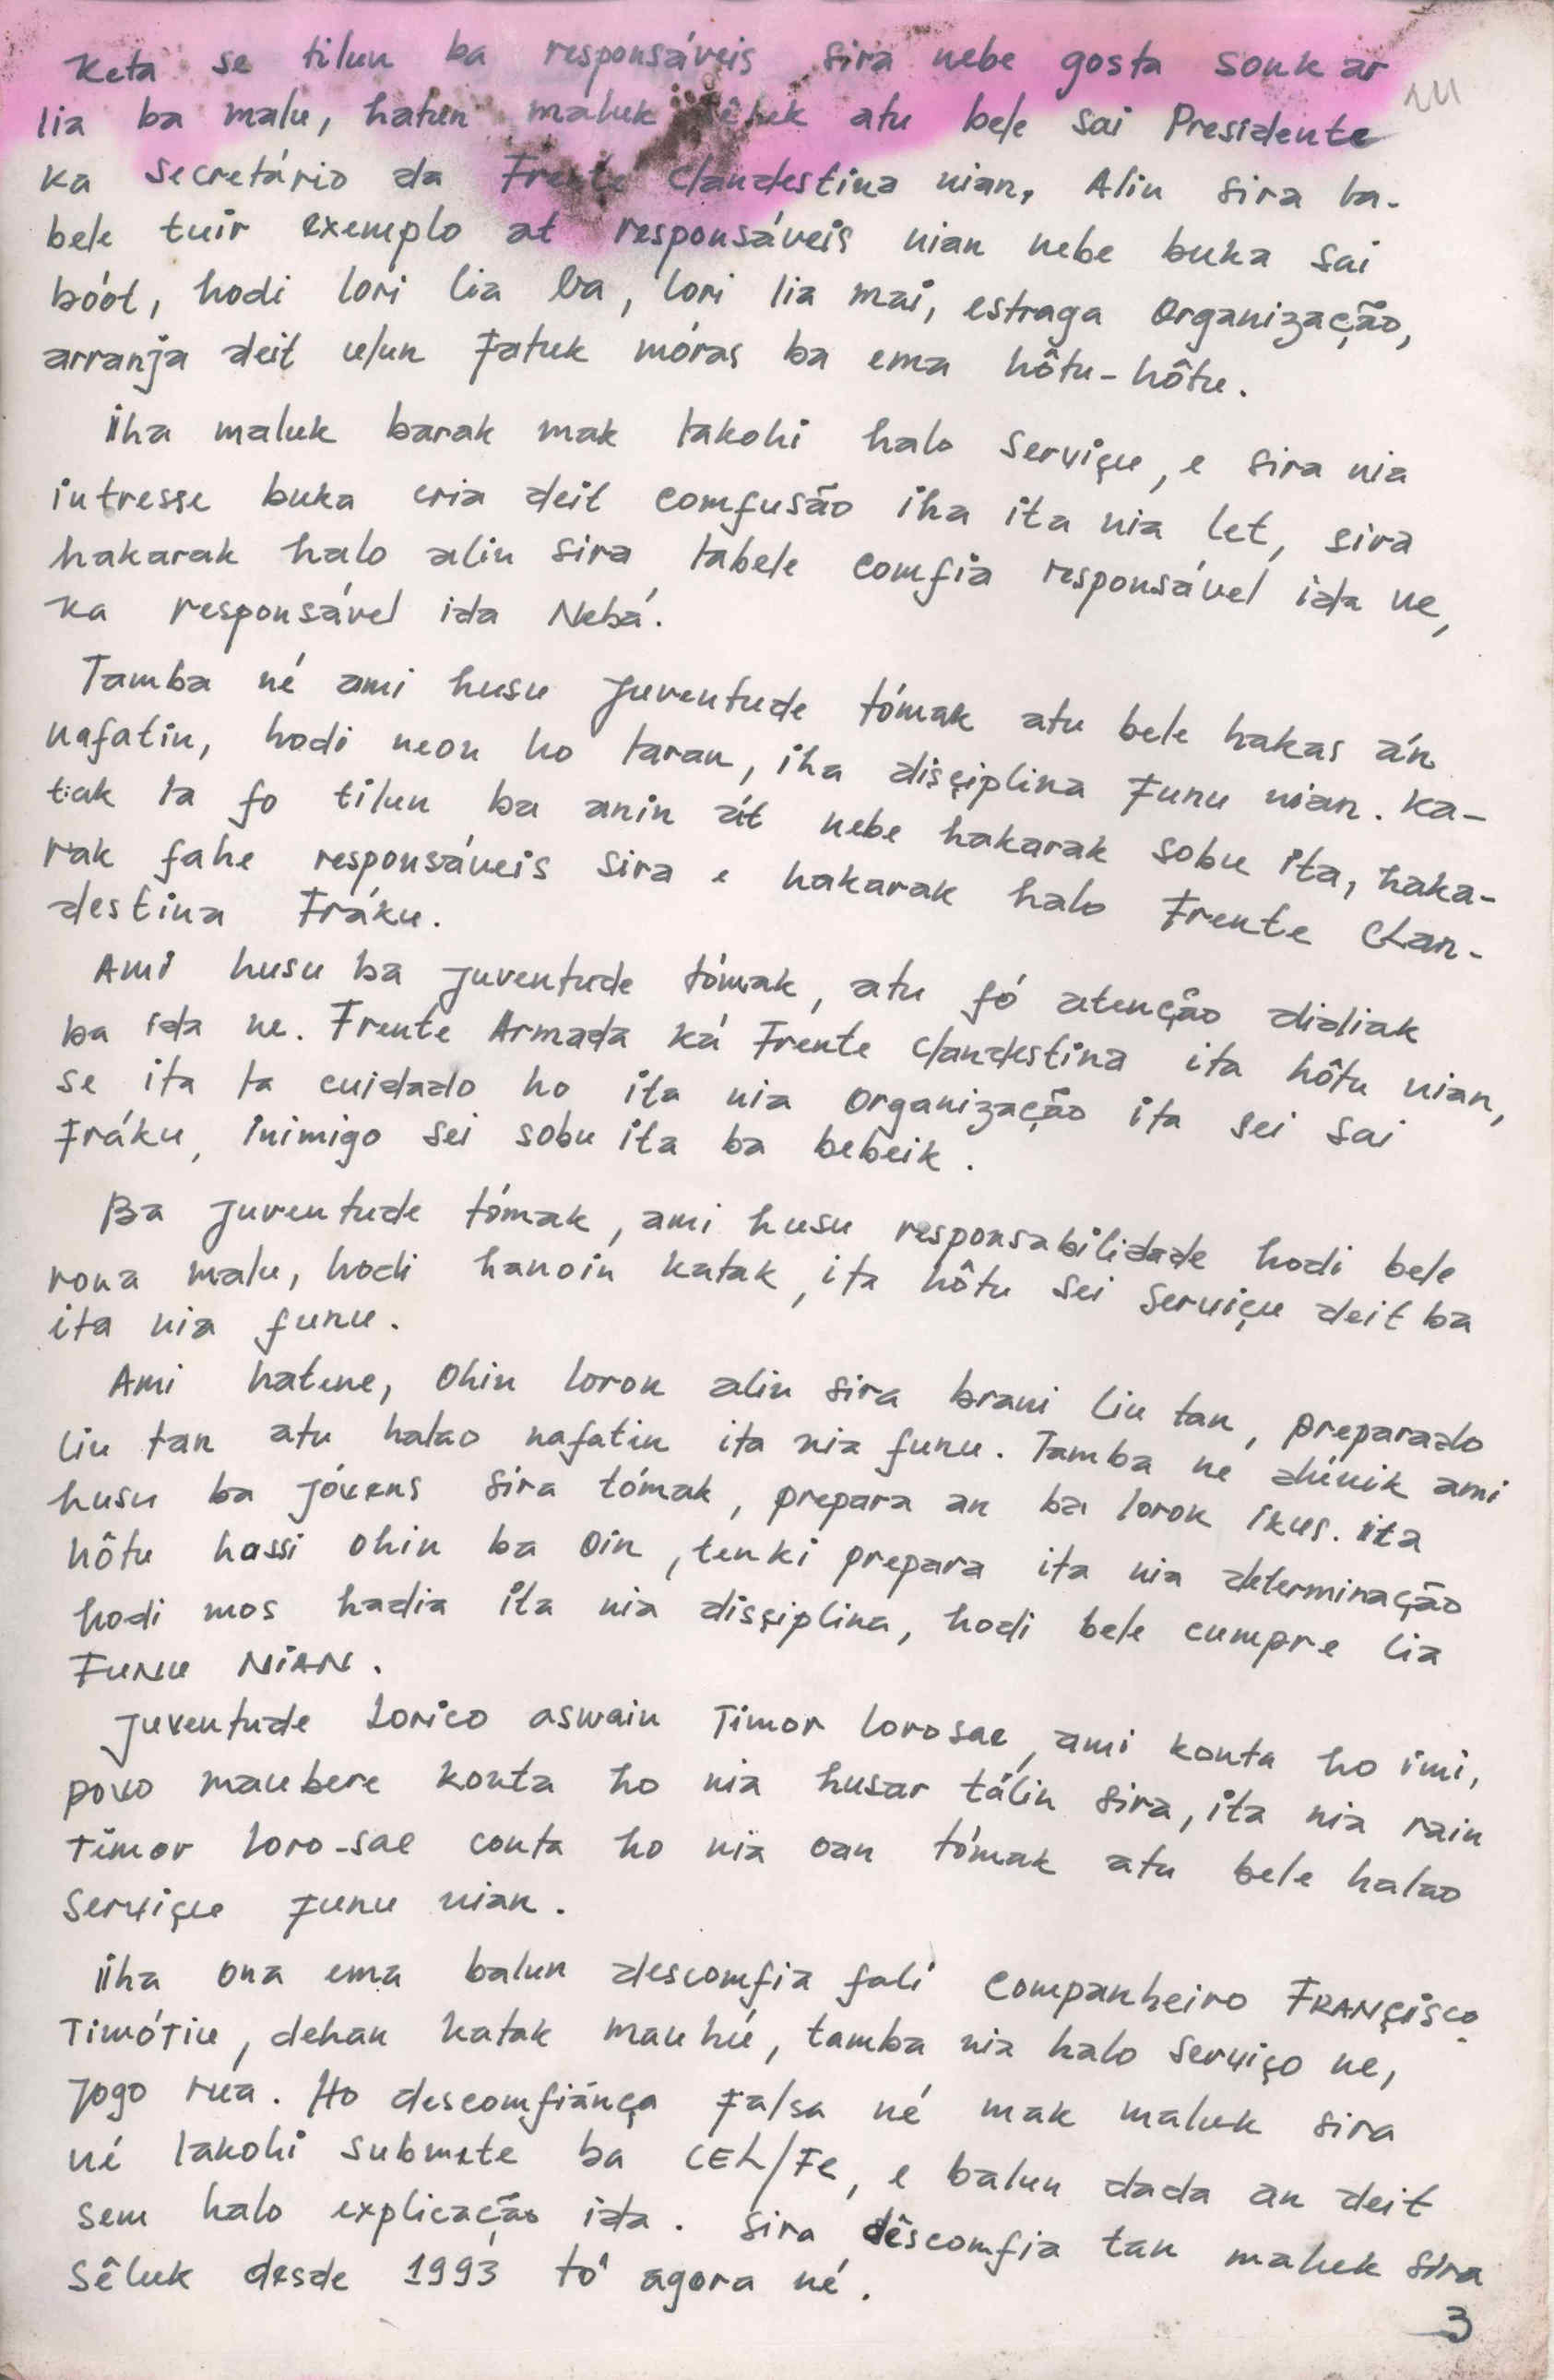 Keta se tilun ba responsáveis sira nebe gosta soukar
lia ba malu, hatun maluk sêluk atu bele sai Presidente
ka secretário da Frente Clandestina nian, Alin sira la-
bele tuir exemplo at responsáveis nian nebe buka sai
bóót, hodi lori lia ba, lori lia mai, estraga Organização,
arranja deit ulun Fatuk móras ba ema hôtu-hôtu.
iha maluk barak mak lakohi halo Serviçu, e sira nia
intresse buka cria deit comfusão iha ita nia let, sira
hakarak halo alin sira, labele comfia responsável ida ne,
ka responsável ida Nebá.
Tamba né ami husu Juventude tómak atu bele hakas án
nafatin, hodi neon ho laran, iha disçiplina Funu nian. Ka-
tak la fo tilun ba anin át nebe hakarak sobu ita, haka-
rak fahe responsáveis sira e hakarak halo Frente Clan-
destina Fráku.
Ami husu ba juventude tómak, atu fó atenção didiak
ba ida ne. Frente Armada ká Frente Clandestina ita hôtu nian,
se ita la cuidado ho ita nia Organização ita sei sai
Fráku, inimigo sei sobu ita ba bebeik.
Ba Juventude tómak, ami husu responsabilidade hodi bele
rona malu, hodi hanoin katak, ita hôtu sei Serviçu deit ba
ita nia funu.
Ami hatene, Ohin loron alin sira brani liu tan, preparado
liu tan atu halao nafatin ita nia funu. Tamba ne dúnik ami
husu ba jóvens sira tómak, prepara an ba loron ikus. ita
hôtu hossi ohin ba oin, tenki prepara ita nia determinação
hodi mos hadia ita nia disçiplina, hodi bele cumpre lia
FUNU NIAN.
Juventude Lorico aswain Timor lorosae, ami konta ho imi,
povo maubere konta ho nia husar tálin sira, ita nia rain
Timor loro-sae conta ho nia oan tómak atu bele halao
Serviçu Funu nian.
iha ona ema balun descomfia fali Companheiro FRANÇISCO
TIMÓTIU, dehan katak mauhú, tamba nia halo serviço ne,
Jogo rua. Ho descomfiánça Falsa né mak maluk sira
né lakohi submete ba CEL/FC, e balun dada an deit
sem halo explicação ida. Sira, dêscomfia tan maluk sira
Sêluk desde 1993 tô agora né.
3